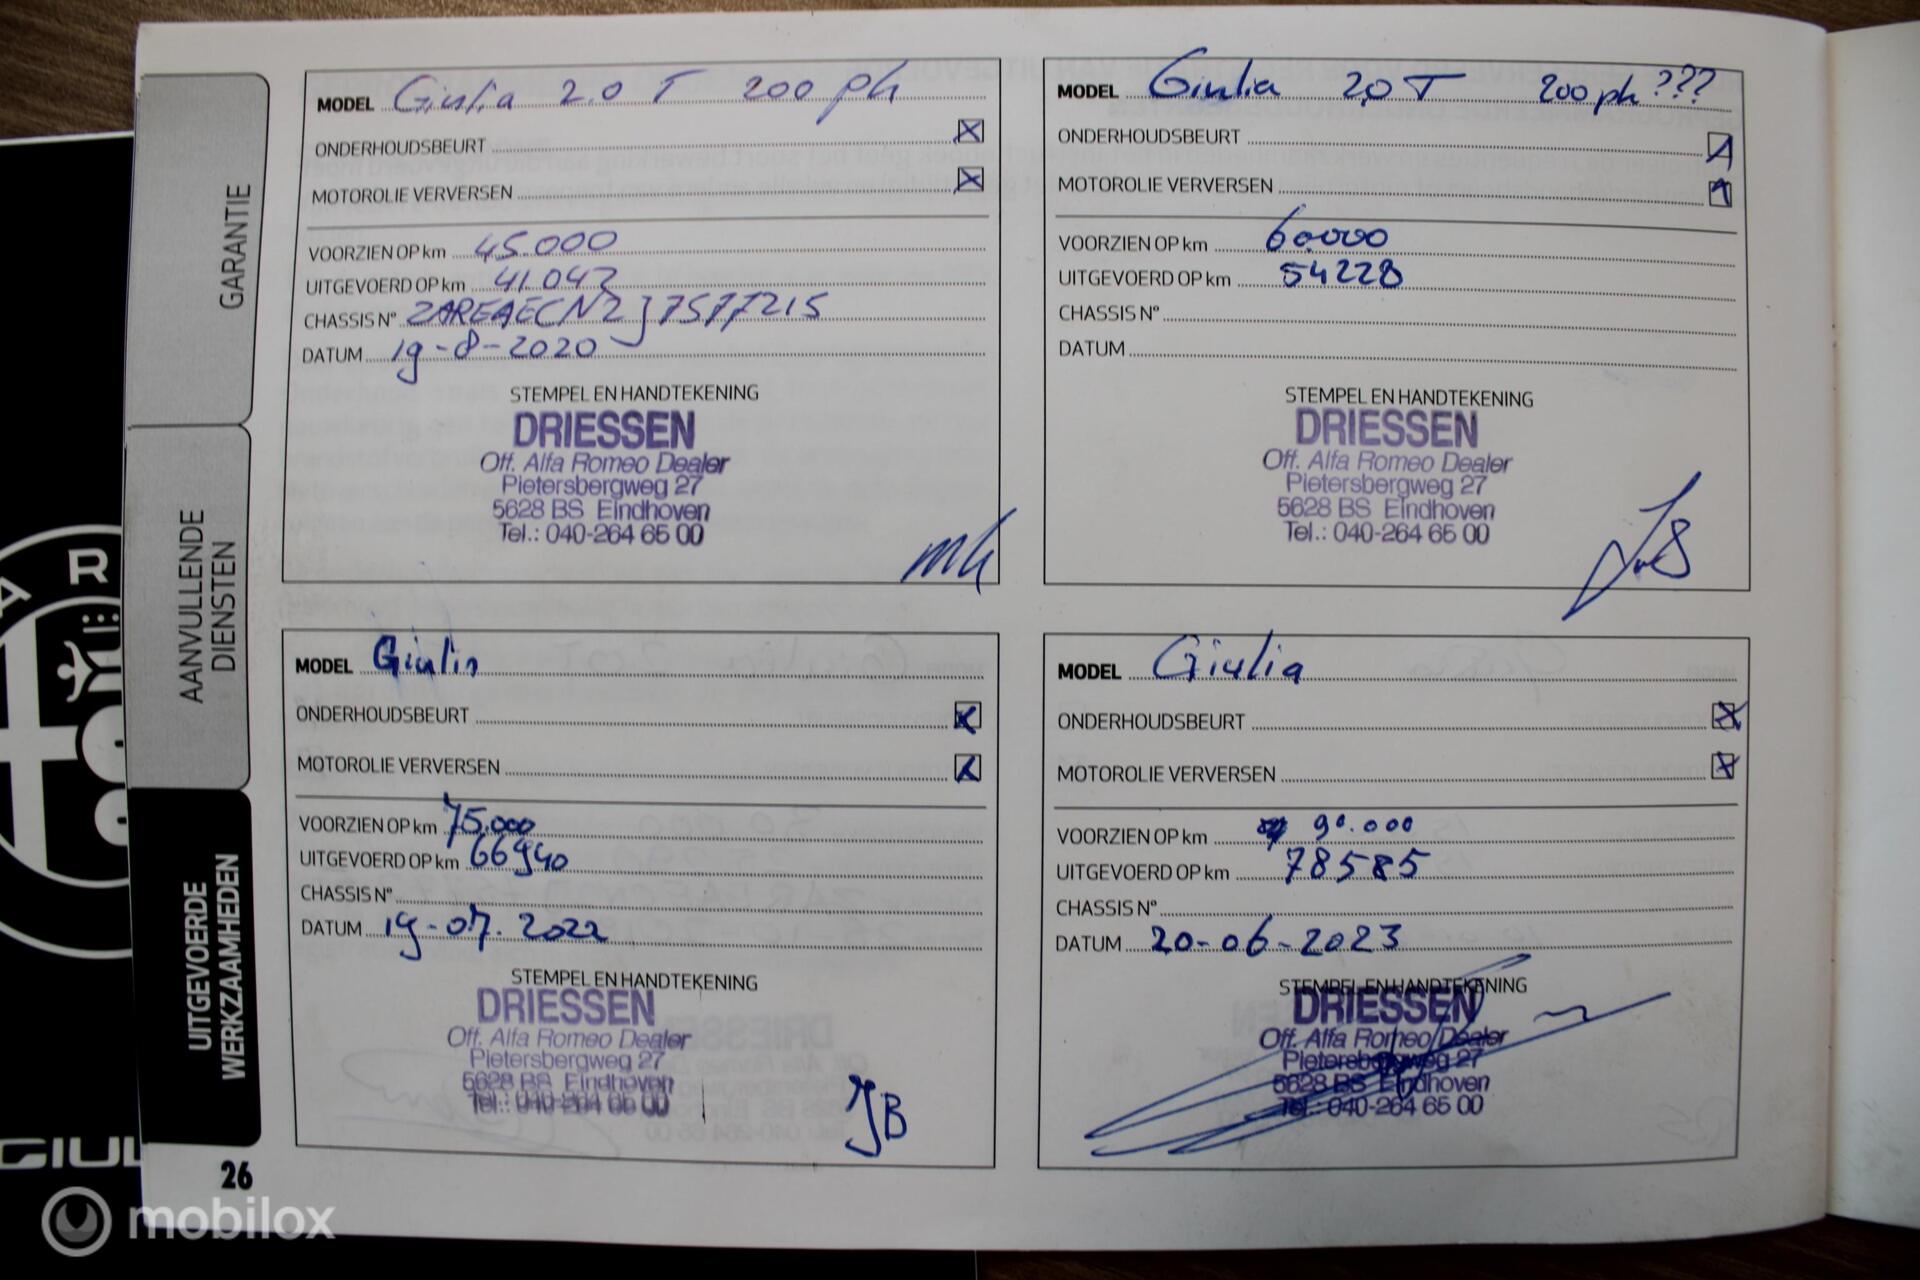 GARANTIE
AANVULLENDE
DIENSTEN
UITGEVOERDE
WERKZAAMHEDEN
26
MODEL Giulia 2.0 T 200 ph
ONDERHOUDSBEURT
MOTOROLIE VERVERSEN
VOORZIEN OP km 45.000
UITGEVOERD OP km 41.042
CHASSIS N° ZAREAECN2J7577215
DATUM 19-8-2020
STEMPEL EN HANDTEKENING
DRIESSEN
Off. Alfa Romeo Dealer
Pietersbergweg 27
5628 BS Eindhoven
Tel.: 040-264 65 00
MODEL Giulia 2.0 T 200 ph ???
ONDERHOUDSBEURT
MOTOROLIE VERVERSEN
VOORZIEN OP km 60.000
UITGEVOERD OP km 54228
CHASSIS N°
DATUM
STEMPEL EN HANDTEKENING
DRIESSEN
Off. Alfa Romeo Dealer
Pietersbergweg 27
5628 BS Eindhoven
Tel.: 040-264 65 00
MODEL Giulia
ONDERHOUDSBEURT
MOTOROLIE VERVERSEN
VOORZIEN OP km 75.000
UITGEVOERD OP km 66940
CHASSIS N°
DATUM 19-07-2022
STEMPEL EN HANDTEKENING
DRIESSEN
Off. Alfa Romeo Dealer
Pietersbergweg 27
5628 BS Eindhoven
Tel.: 040-264 65 00
JB
MODEL Giulia
ONDERHOUDSBEURT
MOTOROLIE VERVERSEN
VOORZIEN OP km 90.000
UITGEVOERD OP km 78585
CHASSIS N°
DATUM 20-06-2023
STEMPEL EN HANDTEKENING
DRIESSEN
Off. Alfa Romeo Dealer
Pietersbergweg 27
5628 BS Eindhoven
Tel.: 040-264 65 00
GIUL
mobilox